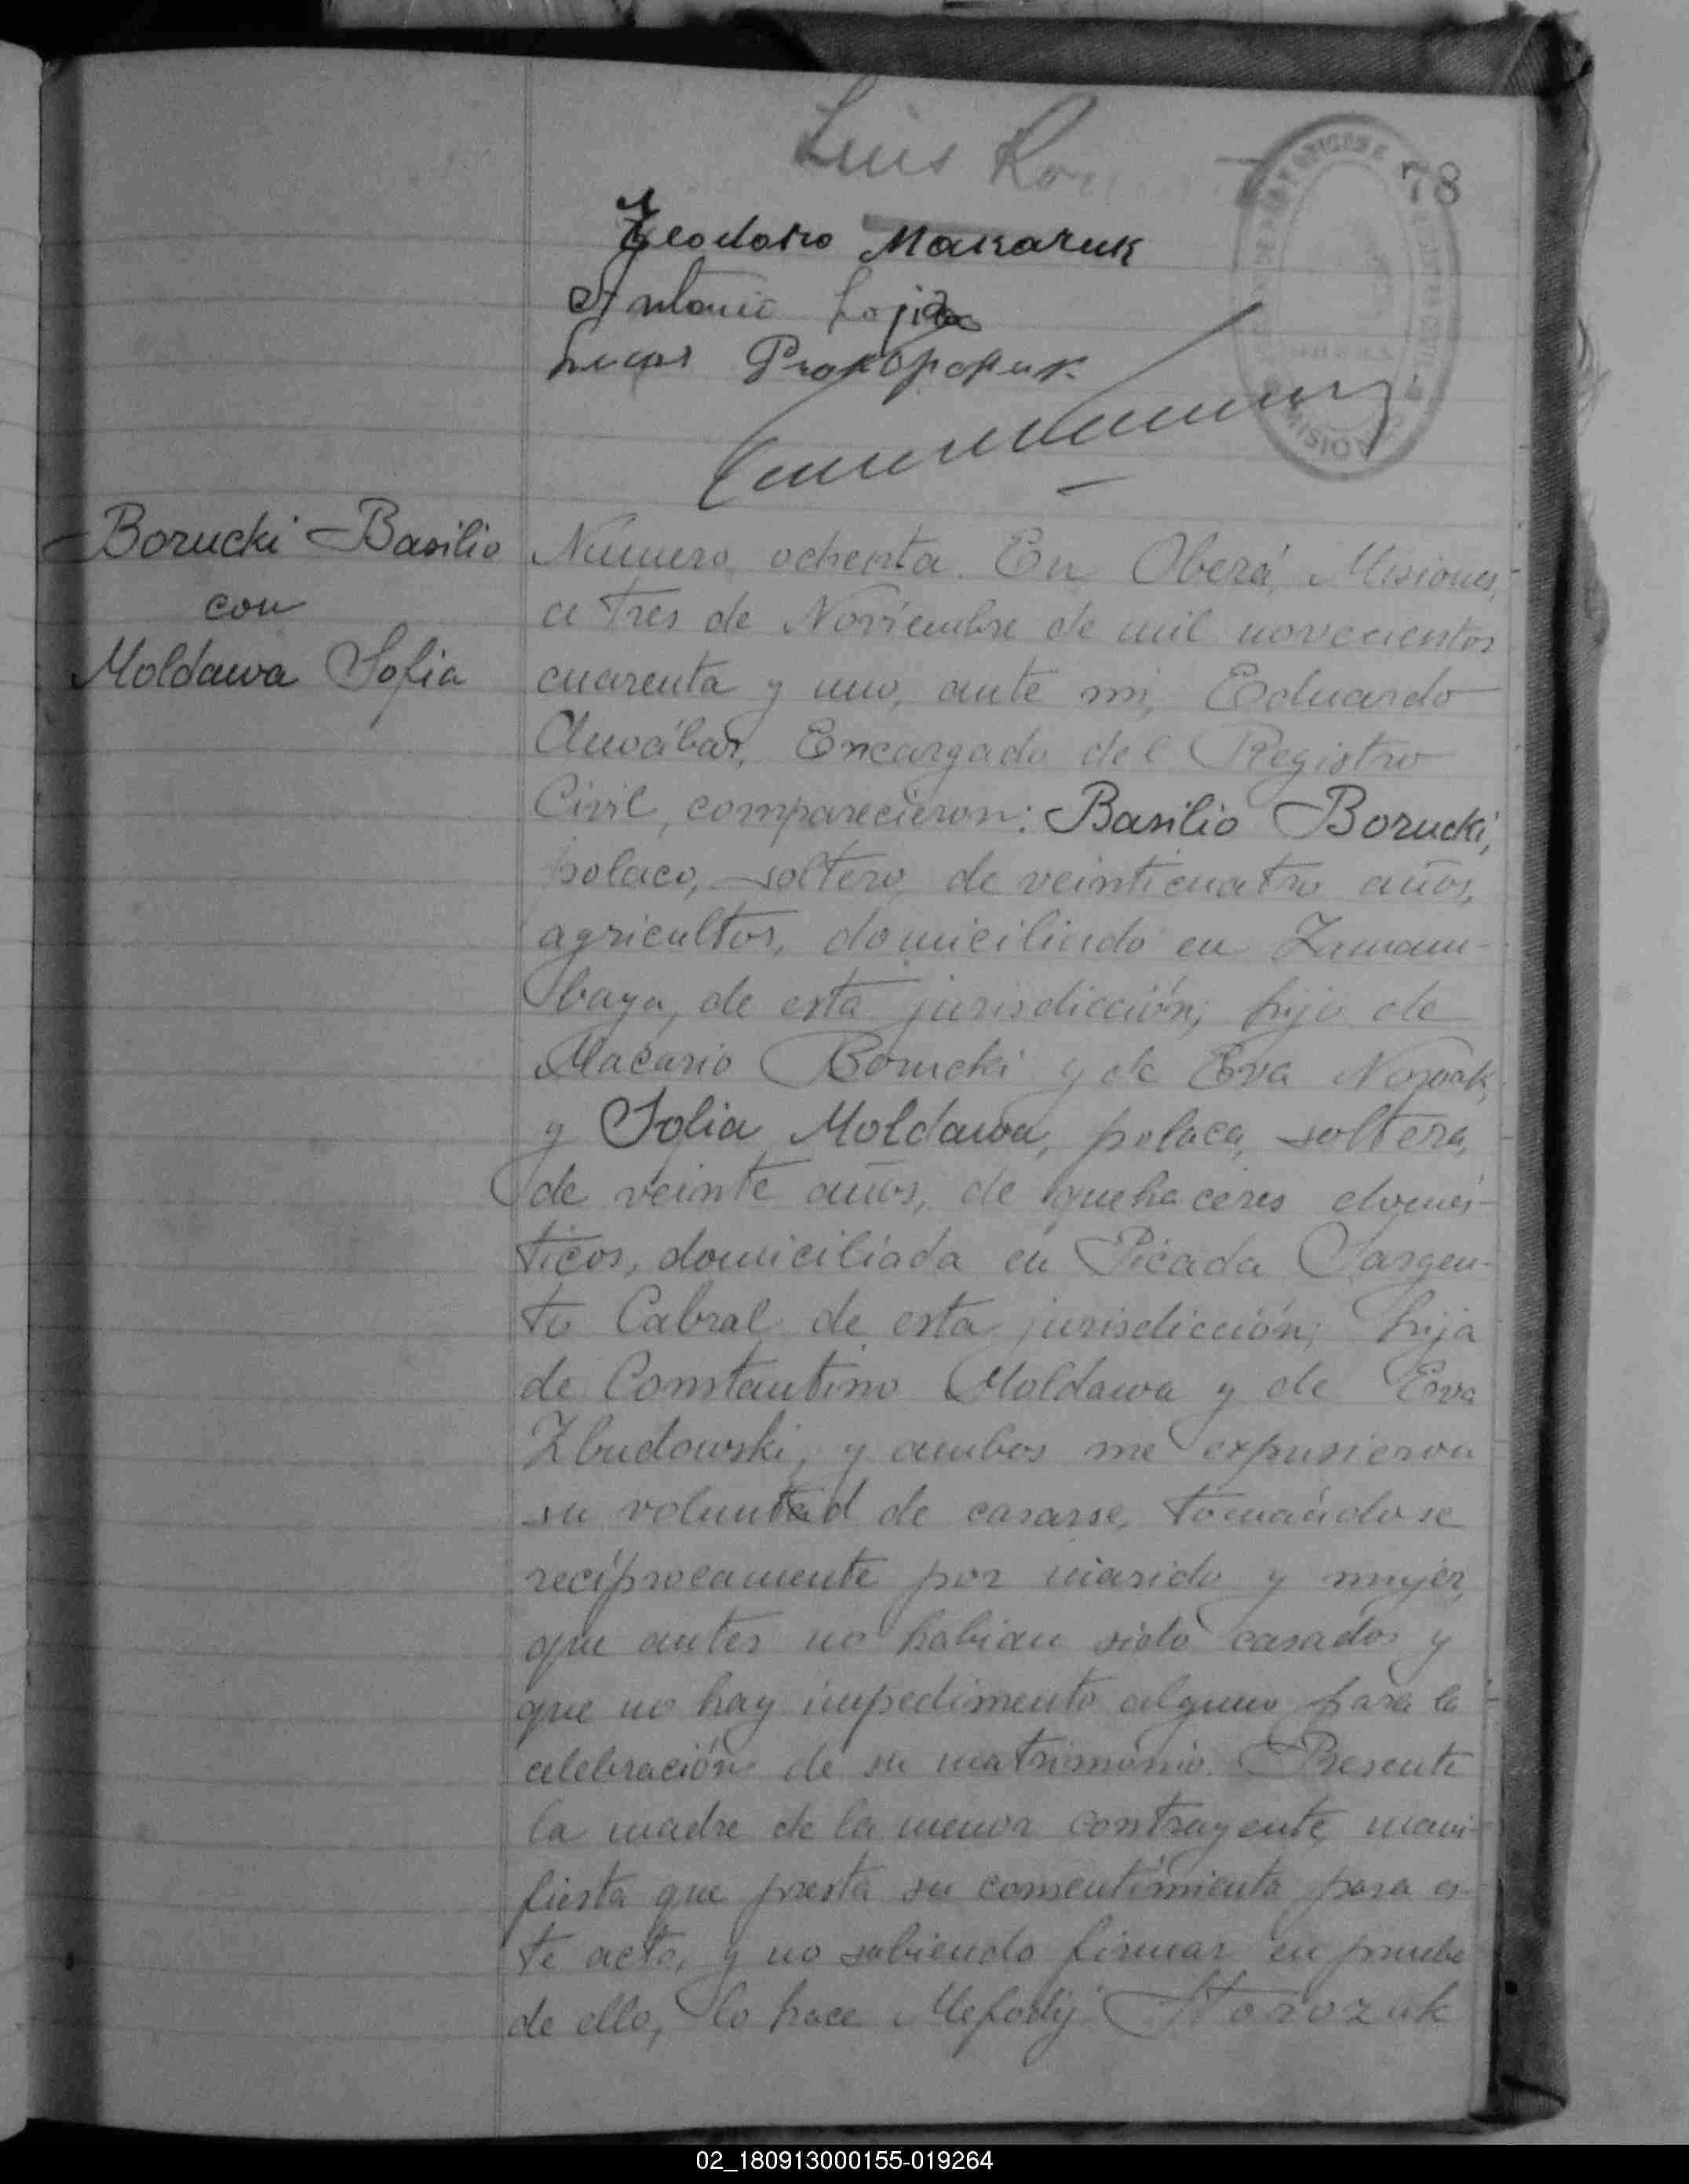 Luis
78
Teodoro Makaruk
Antonio
Lucas Prokopchuk
MISIONES
Borucki Basilio
con
Moldawa Sofia
Número ochenta. En Oberá, Misiones,
a tres de Noviembre de mil novecientos
cuarenta y uno, ante mi, Eduardo
Encargado del Registro
Civil, comparecieron: Basilio Borucki,
polaco, soltero, de veinticuatro años,
agricultor, domiciliado en Zamam-
baya, de esta jurisdicción; hijo de
Macario Borucki y de Eva Nowak,
y Sofia Moldawa, polaca, soltera,
de veinte años, de quehaceres domés-
ticos, domiciliada en Picada Sargen-
to Cabral de esta jurisdicción; hija
de Constantino Moldawa y de Eva
Zbudowski, y ambos me expusieron
su voluntad de casarse, tomándose
recíprocamente por marido y mujer,
que antes no habian sido casados y
que no hay impedimento alguno para la
celebración de su matrimonio. Presente
la madre de la menor contrayente, mani-
fiesta que presta su consentimiento para es-
te acto, y no sabiendo firmar en prueba
de ello, lo hace Mefodij Storozuk
02_180913000155-019264